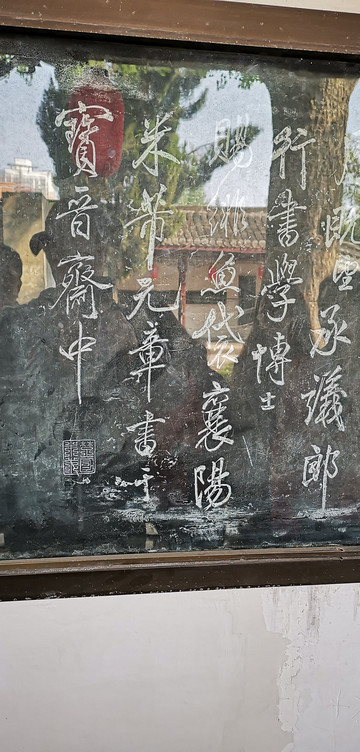 既望承議郎
行書學博士
賜緋魚袋襄陽
米芾元章書于
寶晉齋中